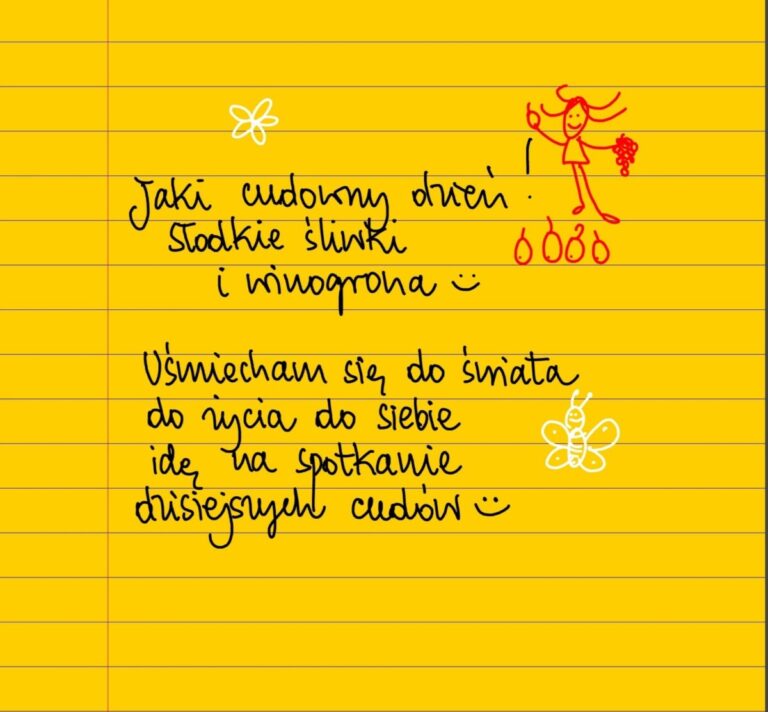 Jaki cudowny dzień!
słodkie śliwki
i winogrona :)
Uśmiecham się do świata
do życia do siebie
idę na spotkanie
dzisiejszych cudów :)